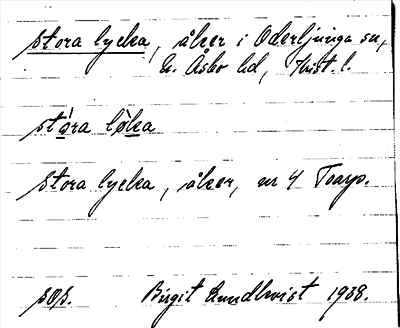 stora lycka, åker i Oderljunga sn,
N. Åsbo hd, Krist. l.
stòra lỳka
stora lycka, åker, nr 4 Tarp.
sds. Birgit Lundkvist 1938.